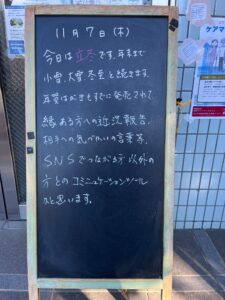 11月7日(木)
今日は立冬です。年末まで
小雪、大雪、冬至と続きます。
年賀はがきもすでに発売されて
縁ある方への近況報告、
相手への気づかいの言葉等、
SNSでつながる方以外の
方とのコミュニケーションツール
かと思います。
ケアマ